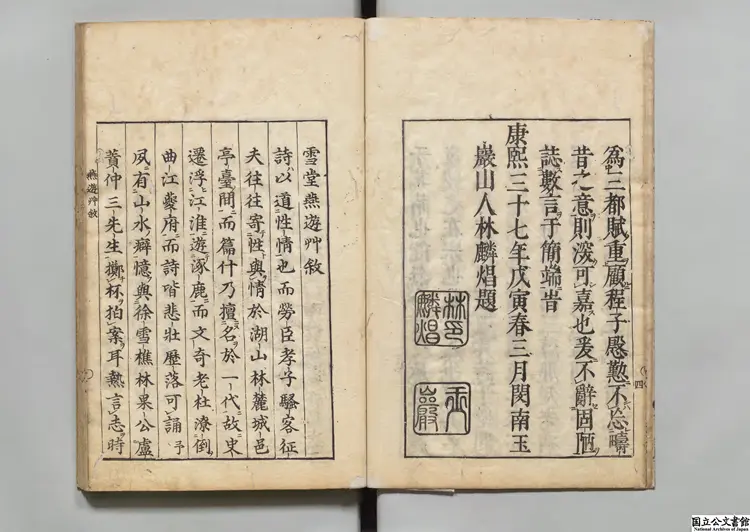 為三都賦重顧程子慇懃不忘疇
昔之意則深可嘉也爰不辭固陋
誌數言于簡端旹
康熙三十七年戊寅春三月閩南玉
巖山人林麟焻題
四
雪堂燕遊艸敘
詩以道性情也而勞臣孝子騷客征
夫往往寄性與情於湖山林麓城邑
亭臺間而篇什乃擅名於一代故史
遷浮江淮遊涿鹿而文奇老杜潦倒
曲江夔府而詩皆悲壯歷落可誦予
夙有山水癖憶與徐雪樵林果公盧
蕡仲三先生擲杯拍案耳熱言志時
燕遊艸敘
国立公文書館
National Archives of Japan